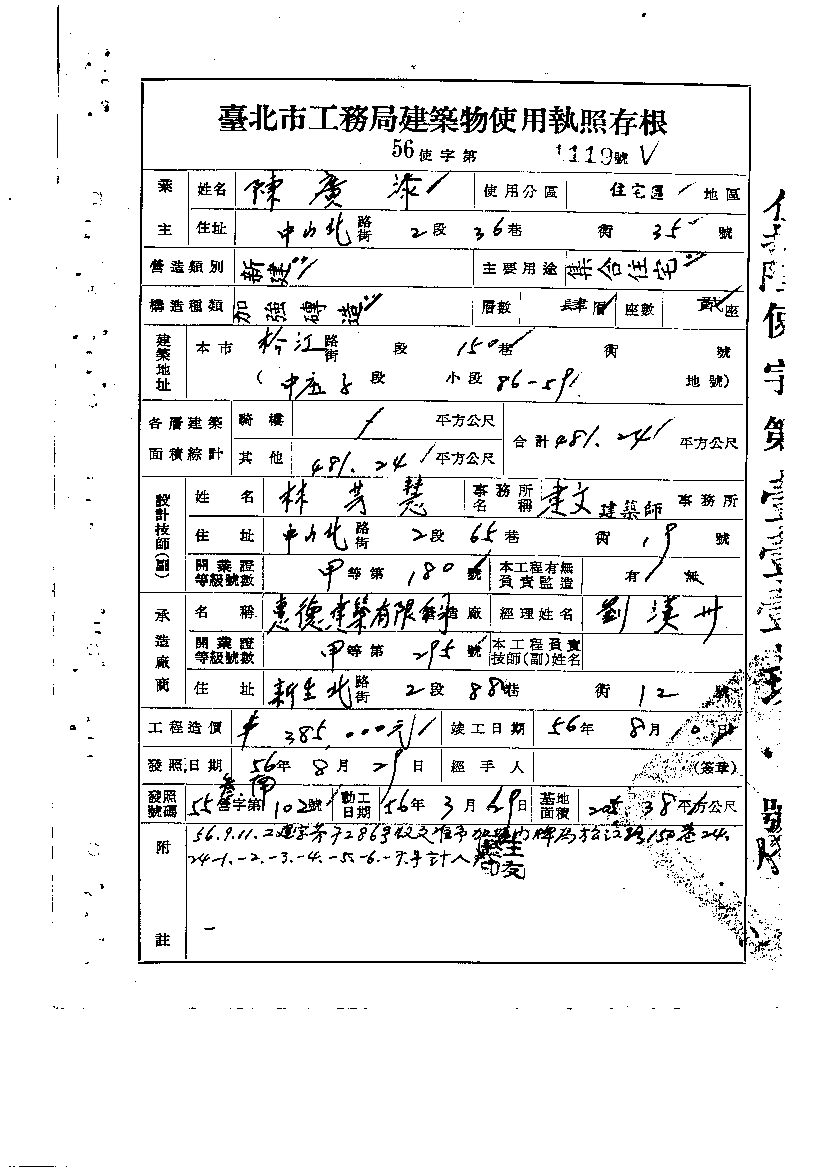 臺北市工務局建築物使用執照存根
56使字第 1119號
業主 姓名 陳廣添 使用分區 住宅區 地區
住址 中山北路街 2段 36巷 衖 35號
營造類別 新建 主要用途 集合住宅
構造種類 加強磚造 層數 肆層 座數 貳座
建築地址 本市 松江路街 段 150巷 衖 號
(中庄子段 小段 86-59 地號)
各層建築面積綜計 騎樓 / 平方公尺 合計 481.24 平方公尺
其他 481.24 平方公尺
設計技師(副) 姓名 林芳慧 事務所名稱 建文建築師 事務所
住址 中山北路街 2段 65巷 衖 19號
開業證等級號數 甲等第 180號 本工程有無負責監造 有 無
承造廠商 名稱 惠德建築有限 營造廠 經理姓名 劉漢卅
開業證等級號數 甲等第 295號 本工程負責技師(副)姓名
住址 新生北路街 2段 88巷 衖 12號
工程造價 385,000元 竣工日期 56年 8月 10日
發照日期 56年 8月 29日 經手人 (簽章)
發照號碼 55營字第 102號 動工日期 56年 3月 29日 基地面積 205.38平方公尺
附註 56.9.11. 內牌為松江路150巷24.
24-1.-2.-3.-4.-5.-6.-7.號計
使字第壹壹壹 號